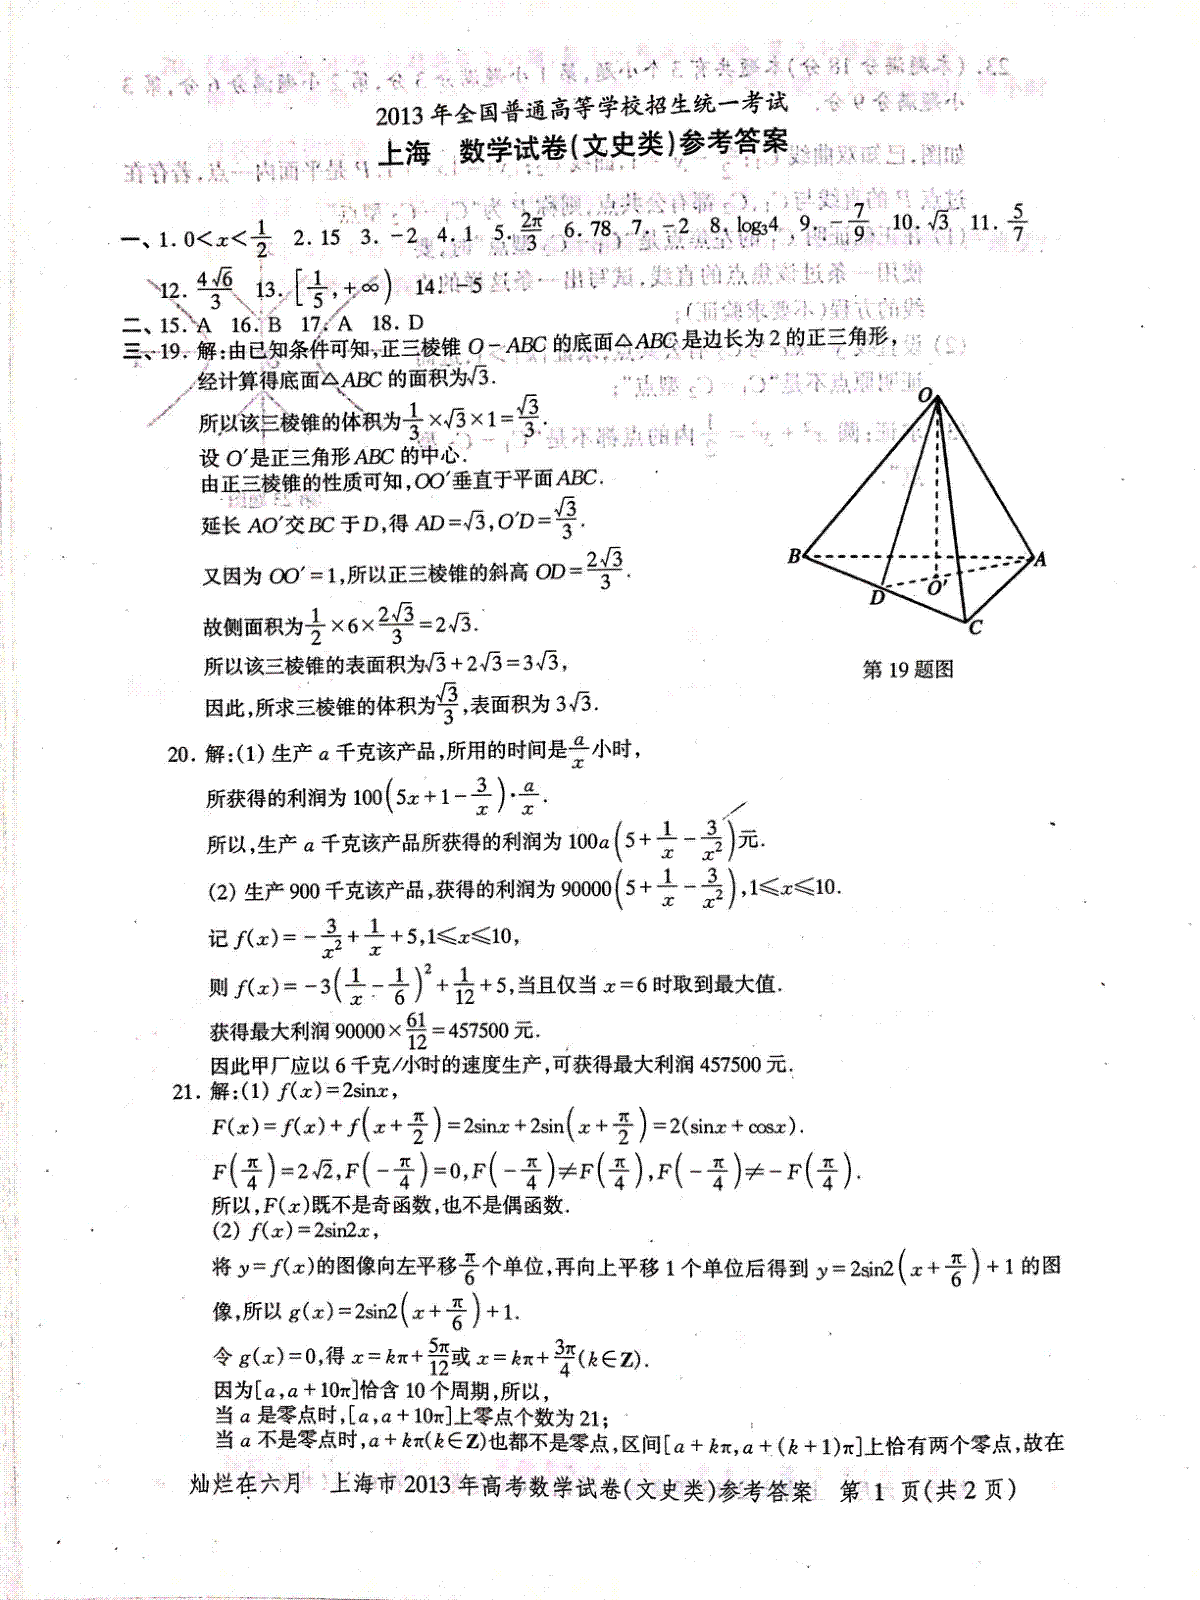 2013年全国普通高等学校招生统一考试
上海 数学试卷(文史类)参考答案
一、1. 0<x<1/2 2. 15 3. -2 4. 1 5. 2π/3 6. 78 7. -2 8. log₃4 9. -7/9 10. √3 11. 5/7
12. 4√6/3 13. [1/5,+∞) 14. -5
二、15. A 16. B 17. A 18. D
三、19. 解:由已知条件可知,正三棱锥 O-ABC 的底面△ABC 是边长为2的正三角形,
经计算得底面△ABC 的面积为√3.
所以该三棱锥的体积为1/3×√3×1=√3/3.
设 O′是正三角形 ABC 的中心.
由正三棱锥的性质可知,OO′垂直于平面 ABC.
延长 AO′交 BC 于 D,得 AD=√3,O′D=√3/3.
又因为 OO′=1,所以正三棱锥的斜高 OD=2√3/3.
故侧面积为1/2×6×2√3/3=2√3.
所以该三棱锥的表面积为√3+2√3=3√3,
因此,所求三棱锥的体积为√3/3,表面积为 3√3.
O
B
A
D
O′
C
第19题图
20. 解:(1) 生产 a 千克该产品,所用的时间是a/x小时,
所获得的利润为 100(5x+1-3/x)·a/x.
所以,生产 a 千克该产品所获得的利润为 100a(5+1/x-3/x²)元.
(2) 生产 900 千克该产品,获得的利润为 90000(5+1/x-3/x²),1≤x≤10.
记 f(x)=-3/x²+1/x+5,1≤x≤10,
则 f(x)=-3(1/x-1/6)²+1/12+5,当且仅当 x=6 时取到最大值.
获得最大利润 90000×61/12=457500 元.
因此甲厂应以 6 千克/小时的速度生产,可获得最大利润 457500 元.
21. 解:(1) f(x)=2sinx,
F(x)=f(x)+f(x+π/2)=2sinx+2sin(x+π/2)=2(sinx+cosx).
F(π/4)=2√2,F(-π/4)=0,F(-π/4)≠F(π/4),F(-π/4)≠-F(π/4).
所以,F(x)既不是奇函数,也不是偶函数.
(2) f(x)=2sin2x,
将 y=f(x)的图像向左平移π/6个单位,再向上平移 1 个单位后得到 y=2sin2(x+π/6)+1 的图
像,所以 g(x)=2sin2(x+π/6)+1.
令 g(x)=0,得 x=kπ+5π/12或 x=kπ+3π/4(k∈Z).
因为[a,a+10π]恰含 10 个周期,所以,
当 a 是零点时,[a,a+10π]上零点个数为 21;
当 a 不是零点时,a+kπ(k∈Z)也都不是零点,区间[a+kπ,a+(k+1)π]上恰有两个零点,故在
灿烂在六月 上海市2013年高考数学试卷(文史类)参考答案 第1页(共2页)